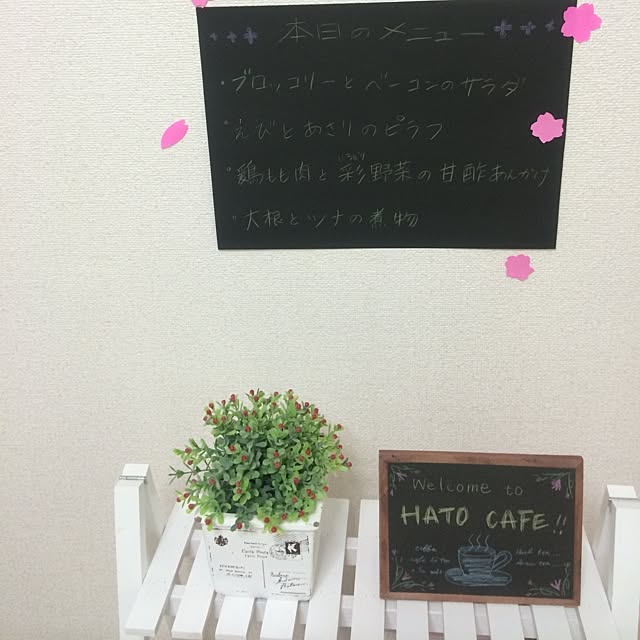 本日のメニュー
・ブロッコリーとベーコンのサラダ
・えびとあさりのピラフ
・鶏もも肉と彩野菜の甘酢あんかけ
いろどり
・大根とツナの煮物
Welcome to
HATO CAFE!!